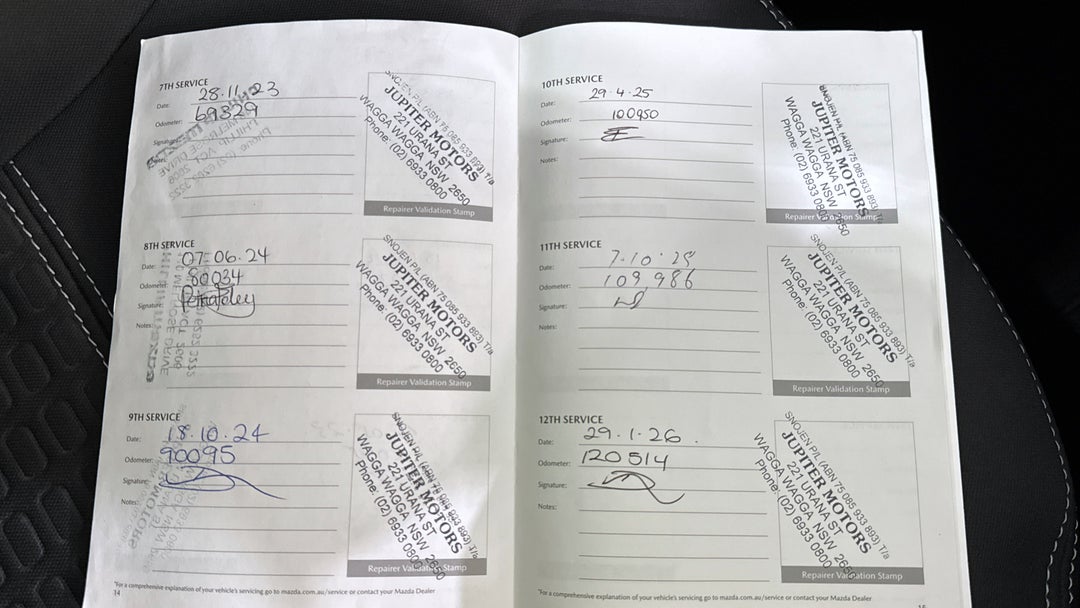 7TH SERVICE
Date: 28·11·23
Odometer: 69329
Signature:
Notes:
SNOJEN P/L (ABN 75 085 933 893) T/a
JUPITER MOTORS
221 URANA ST
WAGGA WAGGA NSW 2650
Phone: (02) 6933 0800
Repairer Validation Stamp
8TH SERVICE
Date: 07-06-24
Odometer: 80034
Signature:
Notes:
SNOJEN P/L (ABN 75 085 933 893) T/a
JUPITER MOTORS
221 URANA ST
WAGGA WAGGA NSW 2650
Phone: (02) 6933 0800
Repairer Validation Stamp
9TH SERVICE
Date: 18·10·24
Odometer: 90095
Signature:
Notes:
SNOJEN P/L (ABN 75 085 933 893) T/a
JUPITER MOTORS
221 URANA ST
WAGGA WAGGA NSW 2650
Phone: (02) 6933 0800
Repairer Validation Stamp
*For a comprehensive explanation of your vehicle's servicing go to mazda.com.au/service or contact your Mazda Dealer
14
10TH SERVICE
Date: 29·4·25
Odometer: 100950
Signature:
Notes:
SNOJEN P/L (ABN 75 085 933 893) T/a
JUPITER MOTORS
221 URANA ST
WAGGA WAGGA NSW 2650
Phone: (02) 6933 0800
Repairer Validation Stamp
11TH SERVICE
Date: 7·10·25
Odometer: 109,986
Signature:
Notes:
SNOJEN P/L (ABN 75 085 933 893) T/a
JUPITER MOTORS
221 URANA ST
WAGGA WAGGA NSW 2650
Phone: (02) 6933 0800
Repairer Validation Stamp
12TH SERVICE
Date: 29·1·26.
Odometer: 120514
Signature:
Notes:
SNOJEN P/L (ABN 75 085 933 893) T/a
JUPITER MOTORS
221 URANA ST
WAGGA WAGGA NSW 2650
Phone: (02) 6933 0800
Repairer Validation Stamp
*For a comprehensive explanation of your vehicle's servicing go to mazda.com.au/service or contact your Mazda Dealer